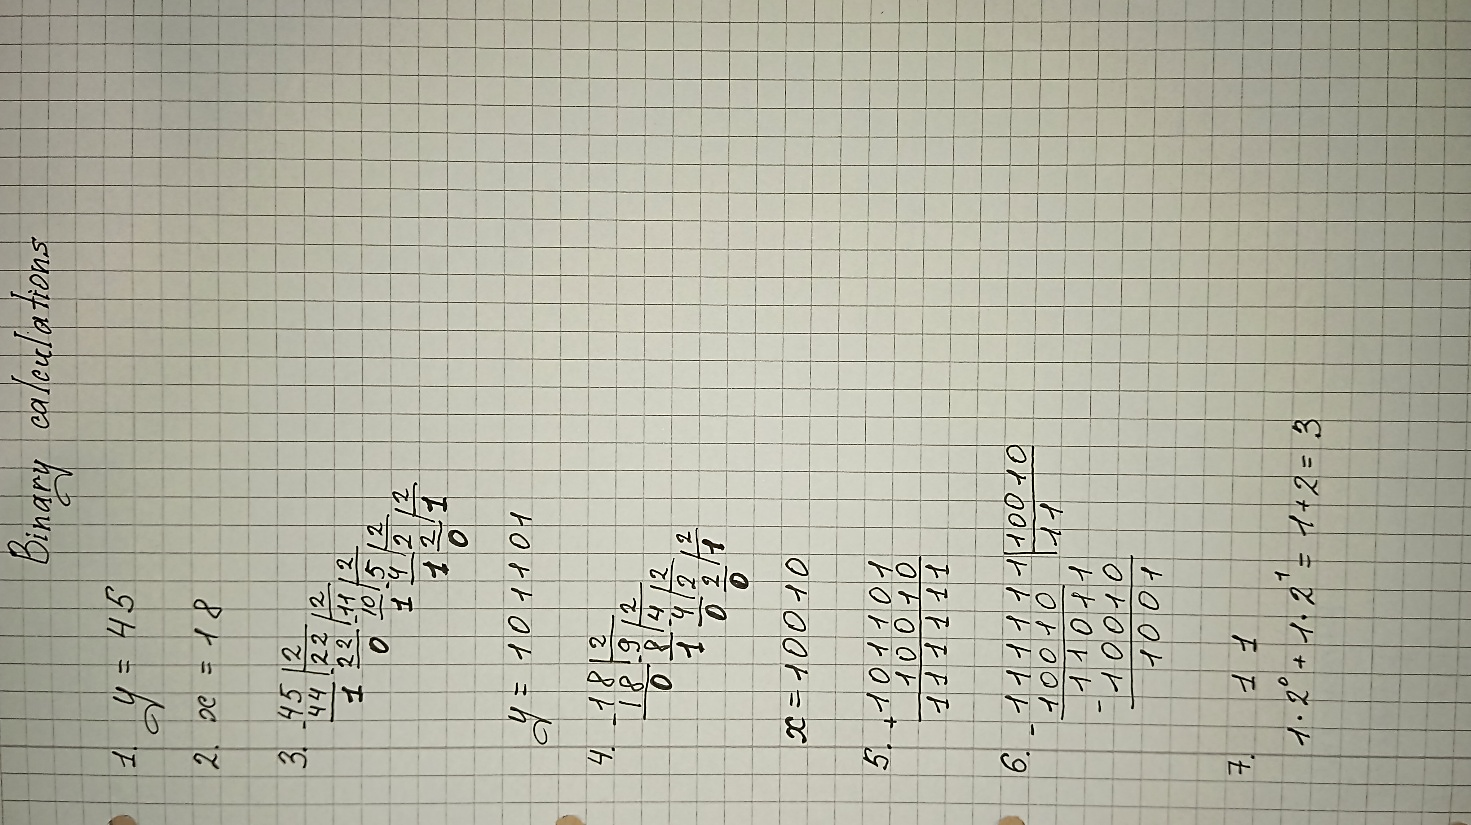 Binary calculations
1. y = 45
2. x = 18
3. -45|2
44|-22|2
1 22|-11|2
0 10|-5|2
1 4|-2|2
1 2|1
0
y = 101101
4. -18|2
18|-9|2
0 8|-4|2
1 4|-2|2
0 2|1
0
x = 10010
5. +101101
10010
111111
6. -111111|10010
10010|11
11011
-10010
1001
7. 11
1·2⁰+1·2¹=1+2=3